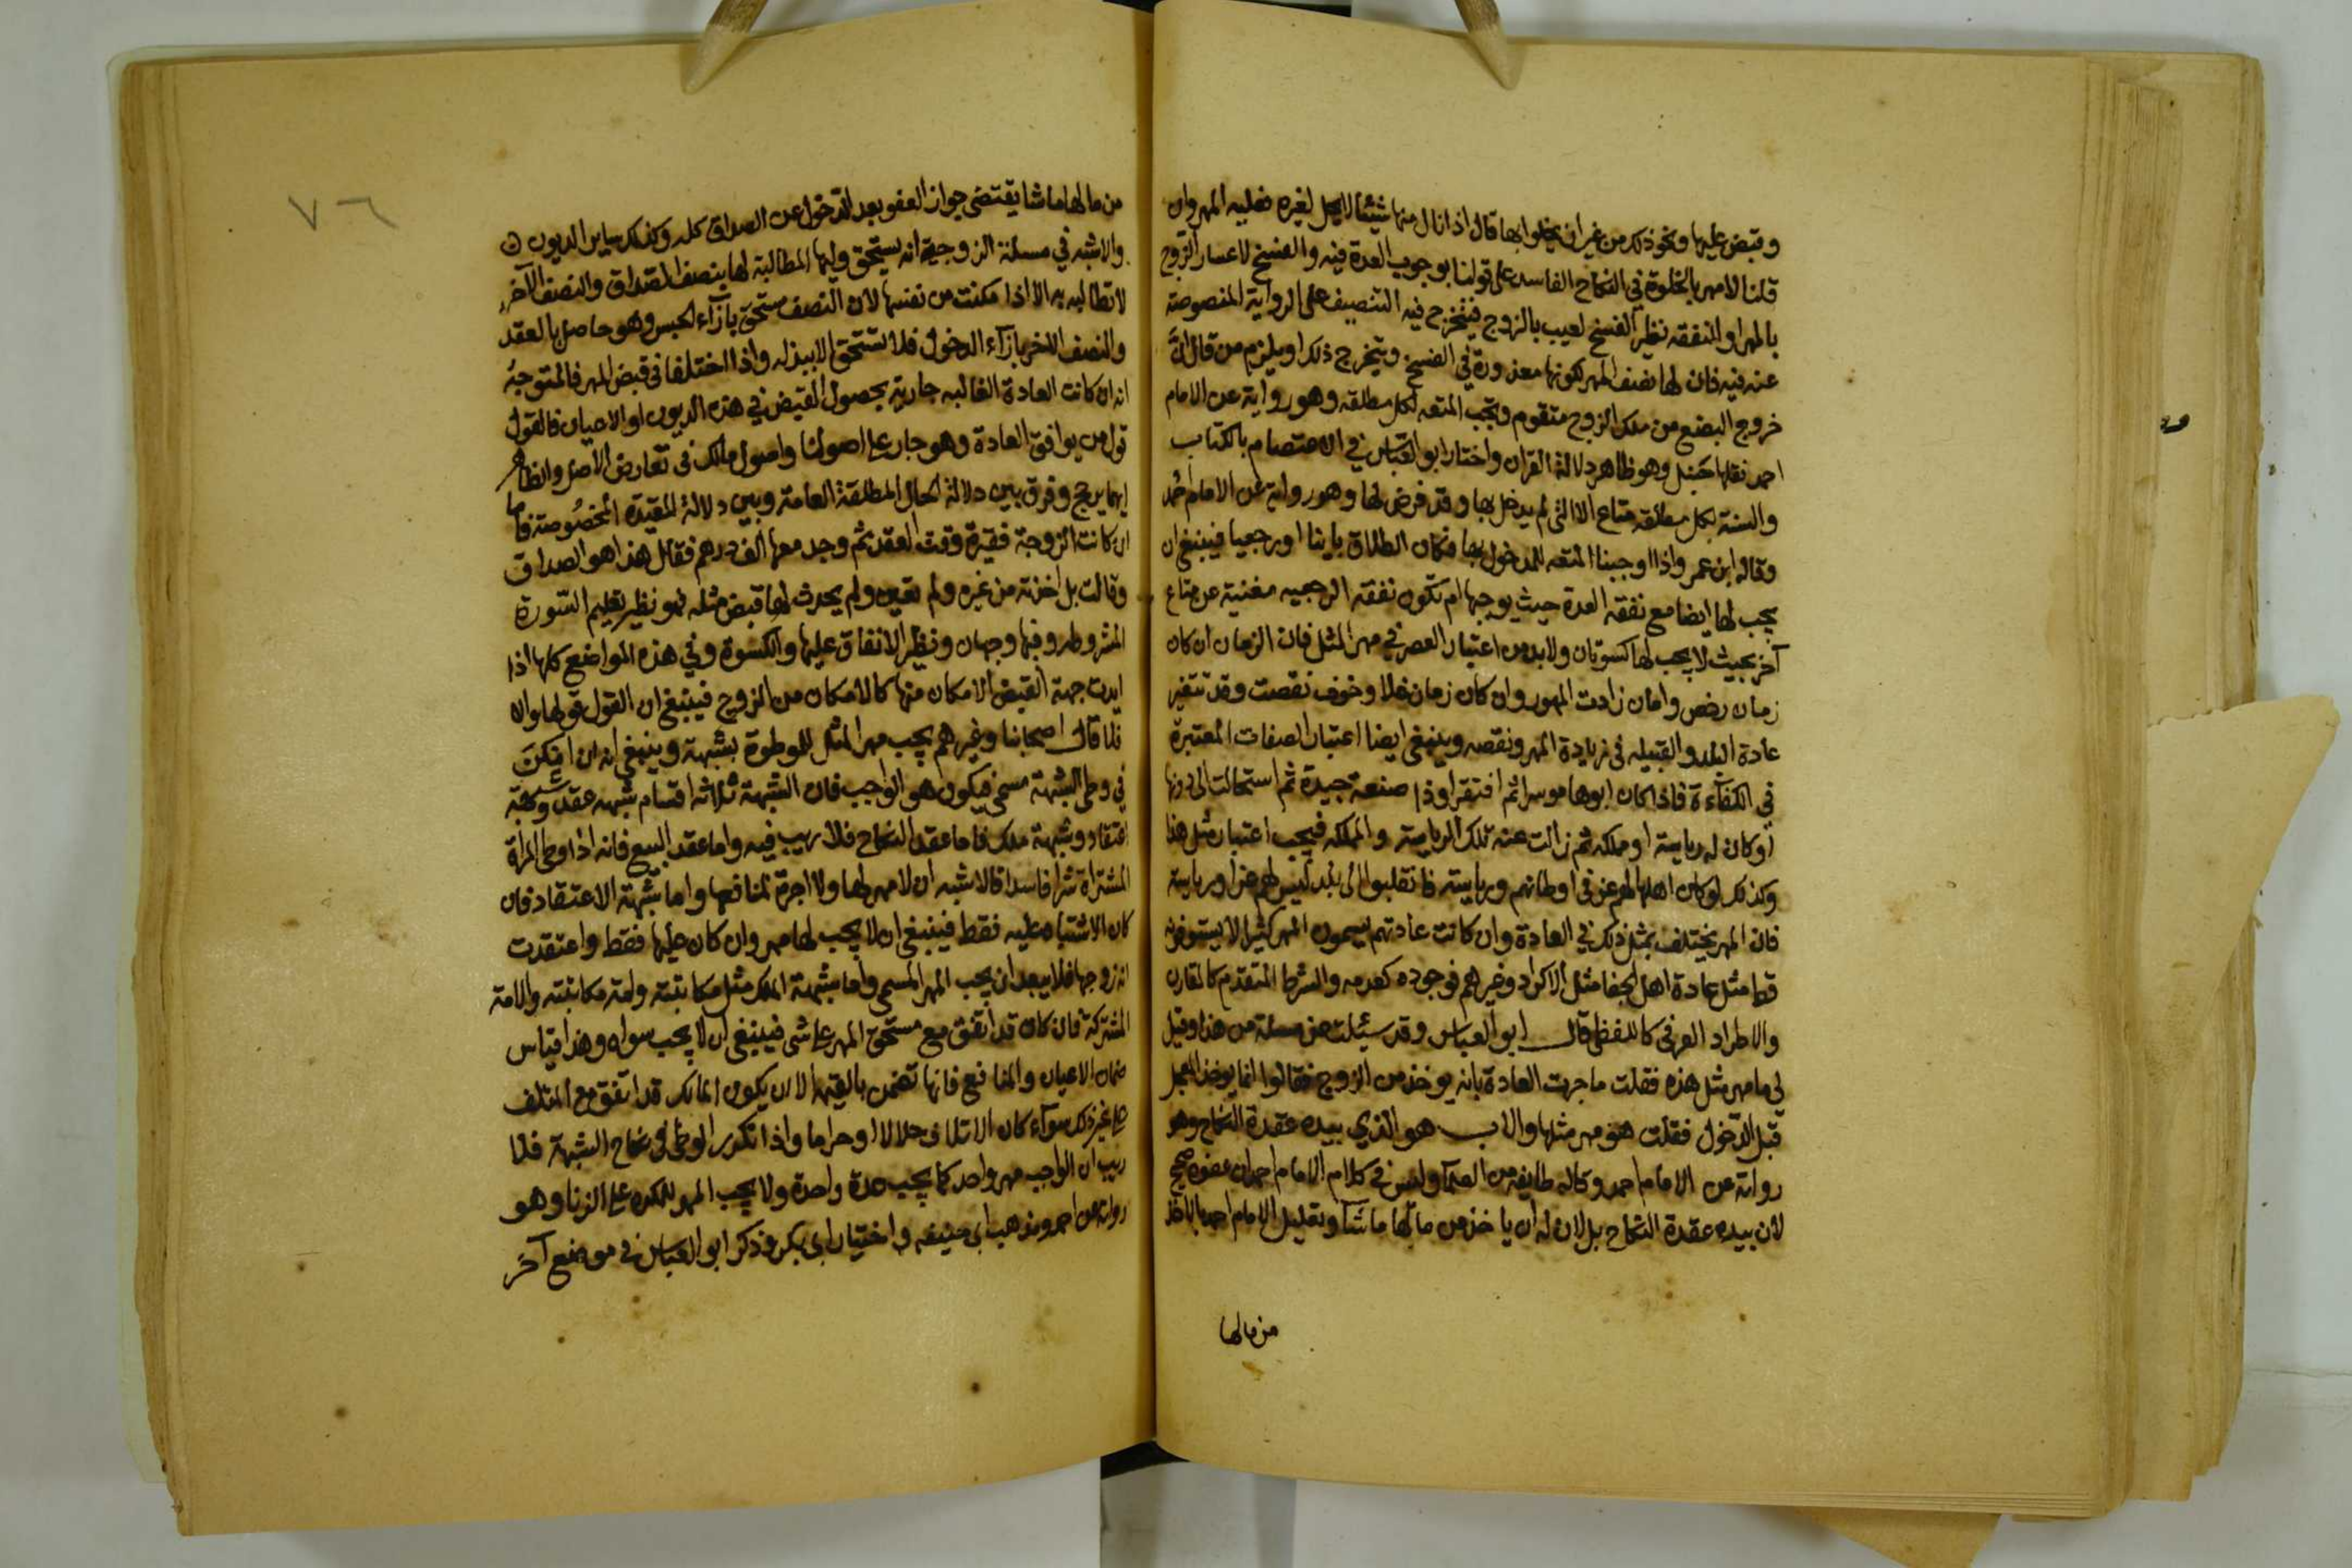 وقبض عليها ونحو ذلك من غير ان يخلوا بها قال اذا نال منها شيئا لا يحل لغيره فعليه المهر وان
قلنا لا مهر بالخلوة في النكاح الفاسد على قولنا بوجوب العدة فيه والفسخ لاعسار الزوج
بالمهر او النفقه نظير الفسخ لعيب بالزوج فيخرج فيه التنصيف على الرواية المنصوصة
عنه فيه فان لها نصف المهر لكونها معذورة في الفسخ ويتخرج ذلك او يلزم من قال ان
خروج البضع من ملك الزوج متقوم وتجب المتعه لكل مطلقه وهو رواية عن الامام
احمد نقلها حنبل وهو ظاهر دلالة القران واختار ابو العباس في الاعتصام بالكتاب
والسنة لكل مطلقه متاع الا التي لم يدخل بها وقد فرض لها وهو رواية عن الامام احمد
وقاله ابن عمر واذا اوجبنا المتعه للمدخول بها فكان الطلاق باينا او رجعيا فينبغي ان
يجب لها ايضا مع نفقه العدة حيث يوجبها ام تكون نفقه الرجعيه مغنية عن متاع
آخر بحيث لا يجب لها كسوتان ولا بد من اعتبار العصر في مهر المثل فان الزمان ان كان
زمان رخص وامان زادت المهور وان كان زمان غلا وخوف نقصت وقد تتغير
عادة البلد والقبيله في زيادة المهر ونقصه وينبغي ايضا اعتبار الصفات المعتبرة
في الكفآءة فاذا كان ابوها موسرا ثم افتقر او ذا صنعة جيدة ثم استحالت الى دونها
او كان له رياسة او ملكه ثم زالت عنه تلك الرياسة والملكه فيجب اعتبار مثل هذا
وكذلك لو كان اهلها لهم عز في اوطانهم ورياسته فانقلبوا الى بلد ليس لهم عز او رياسة
فان المهر يختلف بمثل ذلك في العادة وان كانت عادتهم يسمون المهر كثيرا لا يستوفونه
قط مثل عادة اهل الجفا مثل الاكراد وغيرهم فوجوده كعدمه والشرط المتقدم كالمقارن
والاطراد العرفي كاللفظي قال ابو العباس وقد سئلت عن مسئلة من هذا وقيل
لي ما مهر مثل هذه فقلت ما جرت العادة بانه يوخذ من الزوج فقالوا انما يوخذ المعجل
قبل الدخول فقلت هو مهر مثلها والاب هو الذي بيده عقدة النكاح وهو
رواية عن الامام احمد وقاله طايفه من العلما وليس في كلام الامام احمد ان عفوه صحيح
لان بيده عقدة النكاح بل لان له ان ياخذ من مالها ما شآ وتعليل الامام احمد بالاخذ
من مالها
٧٦
من مالها ما شا يقتضى جواز العفو بعد الدخول عن الصداق كله وكذلك ساير الديون
والاشبه في مسئلة الزوجية انه يستحق وليها المطالبة لها بنصف الصداق والنصف الآخر
لا تطالبه به الا اذا مكنت من نفسها لان النصف مستحق بازآء الحبس وهو حاصل بالعقد
والنصف الاخر بازآء الدخول فلا تستحق الا ببذله واذا اختلفا في قبض المهر فالمتوجه
انه ان كانت العادة الغالبه جارية بحصول القبض في هذه الديون او الاعيان فالقول
قول من يوافق العادة وهو جار على اصولنا واصول مالك في تعارض الاصل والظاهر
ايهما يرجح وفرق بين دلالة الحال المطلقة العامة وبين دلالة المقيدة المخصوصة فاما
ان كانت الزوجة فقيرة وقت العقد ثم وجد معها الف درهم فقال هذا هو الصداق
وقالت بل اخذته من غيره ولم تعين ولم يحدث لها قبض مثله فهو نظير تعليم السورة
المشروطه وفيها وجهان ونظير الانفاق عليها والكسوة وفي هذه المواضع كلها اذا
ابدت جهة القبض الامكان منها كالامكان من الزوج فينبغي ان القول قولها والا
فلا قال اصحابنا وغيرهم يجب مهر المثل للموطوة بشبهة وينبغي انه ان امكن
في وطى الشبهة مسمى فيكون هو الواجب فان الشبهة ثلاثه اقسام شبهه عقد وشبهة
اعتقاد وشبهة ملك فاما عقد النكاح فلا ريب فيه واما عقد البيع فانه اذا وطى المراة
المشتراة شرا فاسدا فالاشبه ان لا مهر لها ولا اجرة لمنافعها واما شبهة الاعتقاد فان
كان الاشتباه عليه فقط فينبغي ان لا يجب لها مهر وان كان عليها فقط واعتقدت
انه زوجها فلا يبعد ان يجب المهر المسمى واما شبهة الملك مثل مكاتبته وامة مكاتبته والامة
المشتركة فان كان قد اتفق مع مستحق المهر على شى فينبغي ان لا يجب سواه وهذا قياس
ضمان الاعيان والمنافع فانها تضمن بالقيمه الا ان يكون المالك قد اتفق مع المتلف
على غير ذلك سوآء كان الاتلاف حلالا او حراما واذا تكرر الوطى في نكاح الشبهة فلا
ريب ان الواجب مهر واحد كما يجب عدة واحدة ولا يجب المهر للمكره على الزنا وهو
رواية عن احمد ومذهب ابي حنيفه واختيار ابي بكر وذكر ابو العباس في موضع آخر